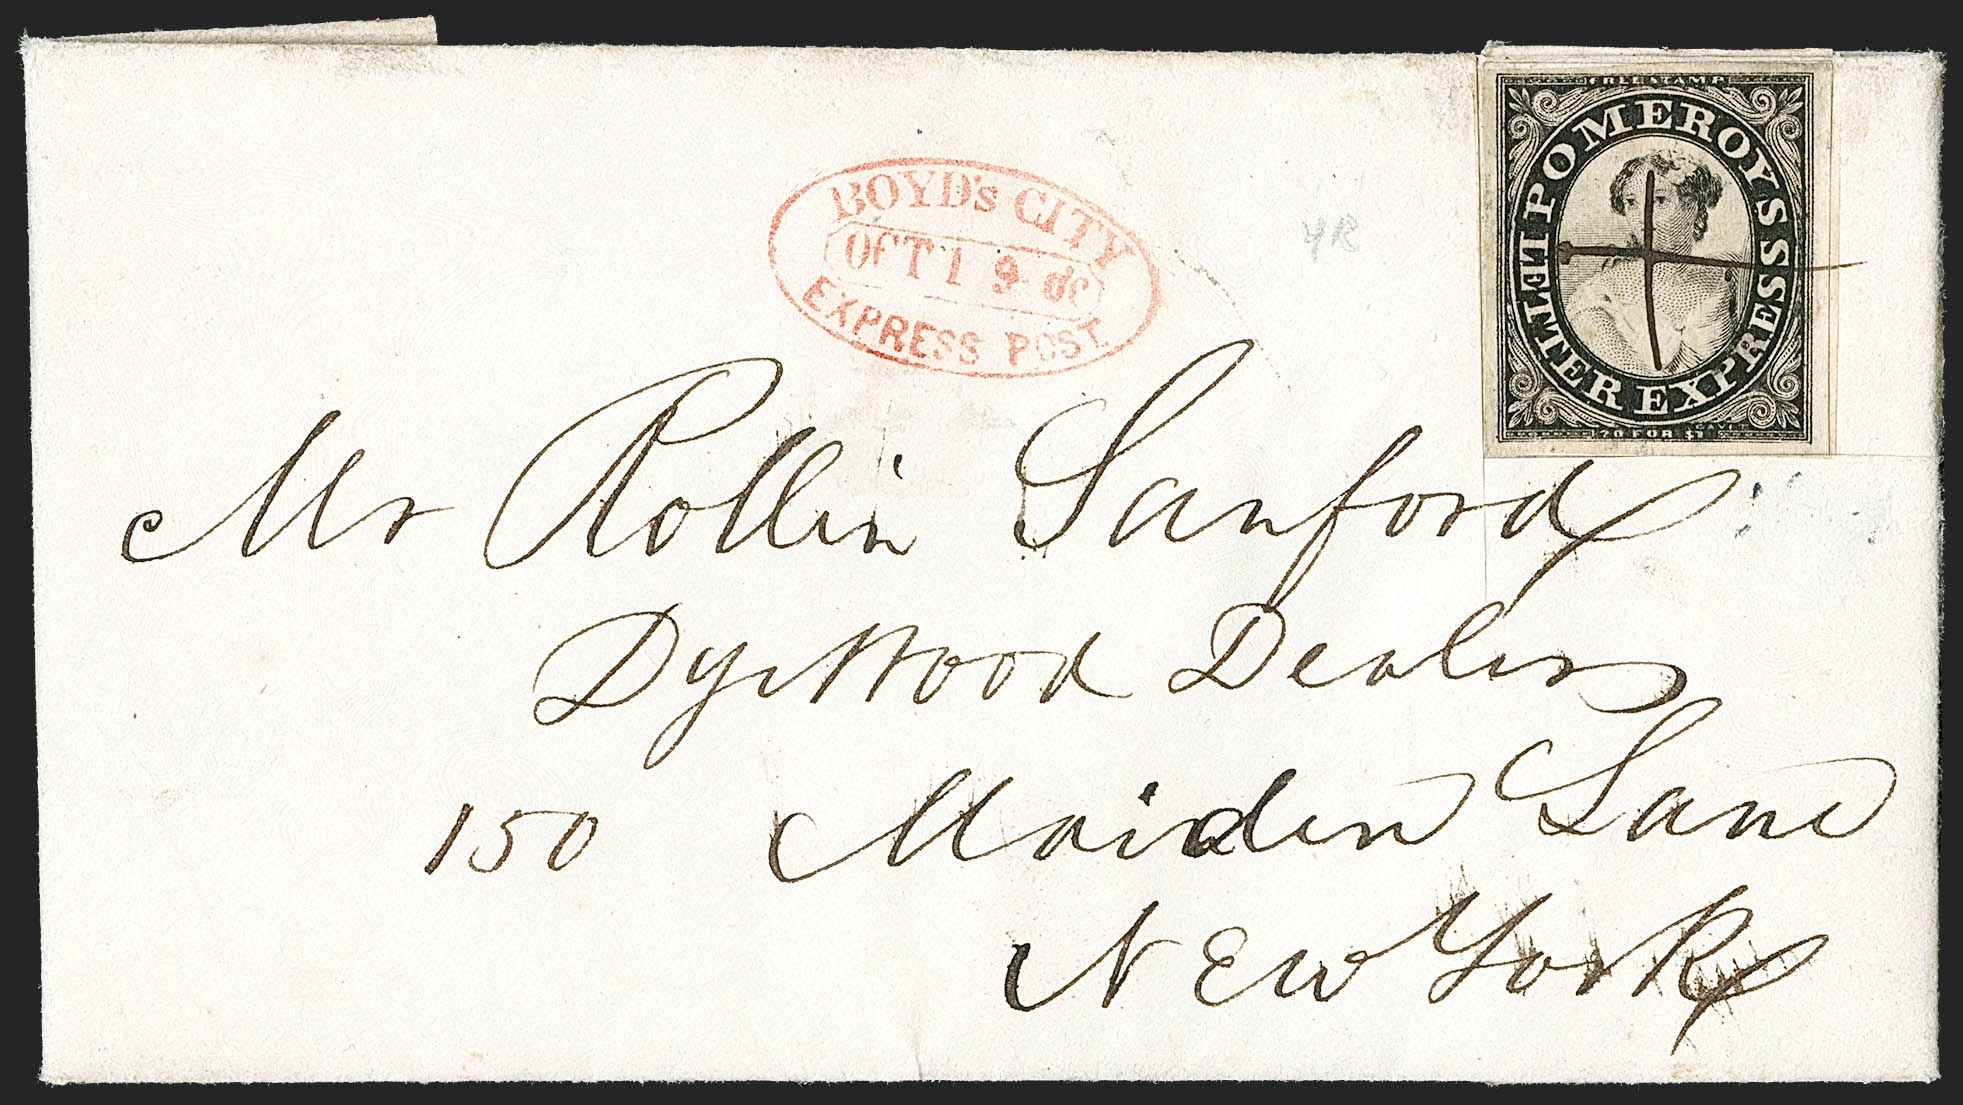 FREE STAMP
POMEROY'S
LETTER EXPRESS
20 FOR $1
BOYD'S CITY
OCT 19
EXPRESS POST.
Mr Rollin Sanford
DyeWood Dealer
150 Maiden Lane
New York